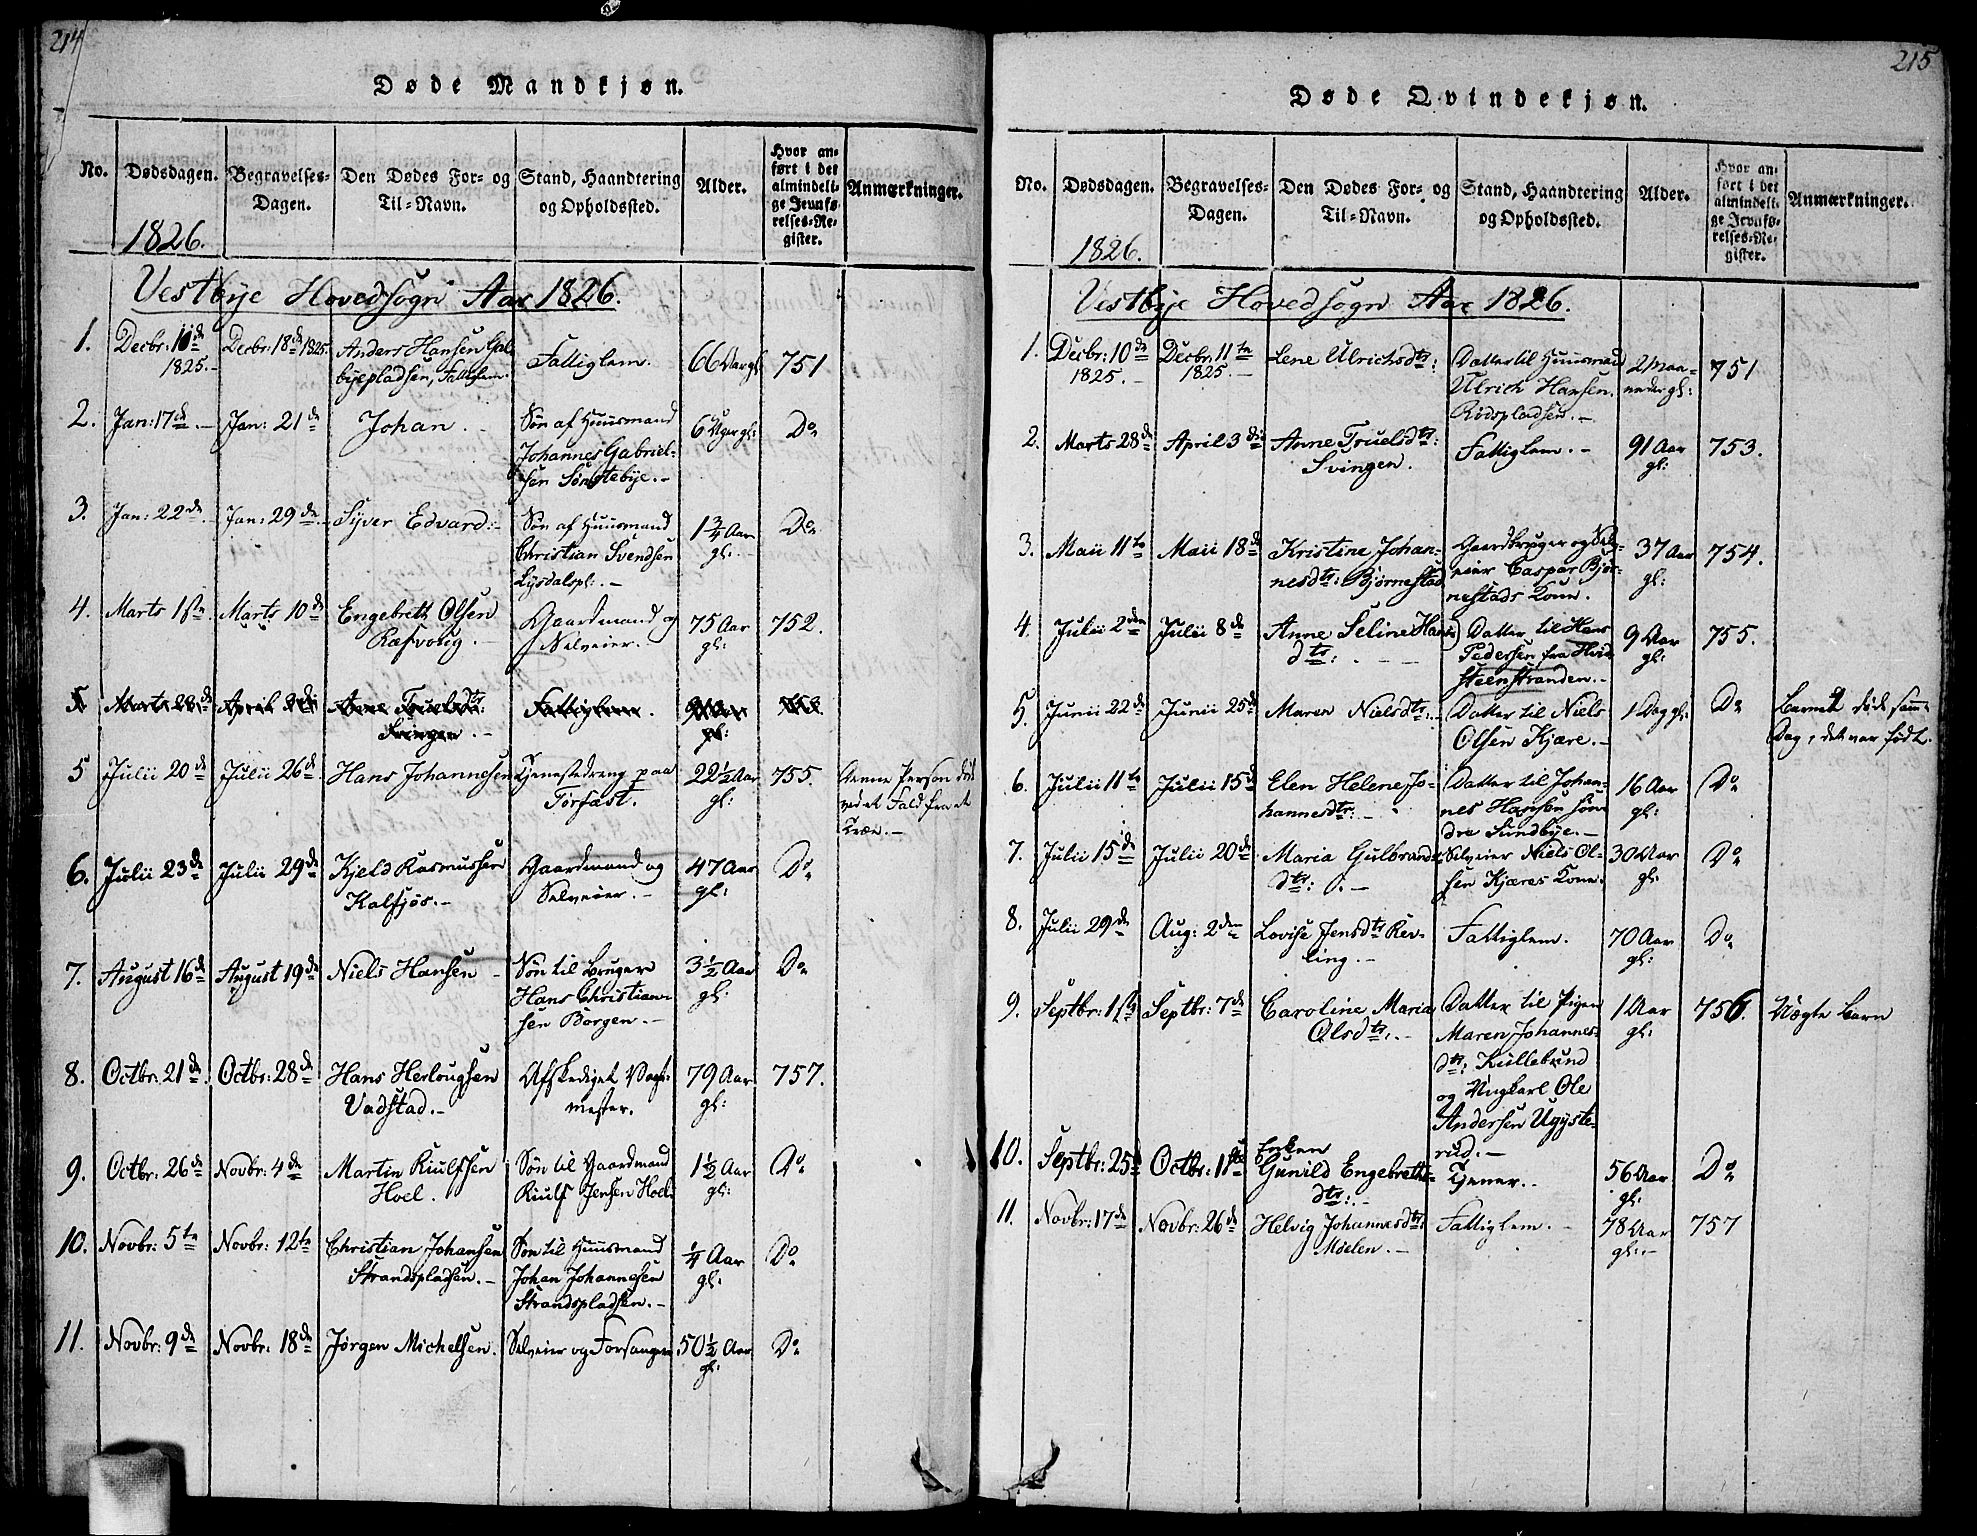 214
Døde Mandkjøn.
No.
Dødsdagen.
1826.
Begravelses-
Dagen.
Den Dødes For- og
Til-Navn.
Stand, Haandtering
og Opholdssted.
Alder.
Hvor an-
ført i det
almindeli-
ge Jevnfø-
relses-Re-
gister.
Anmærkninger.
Vestbye Hovedsogn Aar 1826.
1. Decbr: 10de 1825.- Decbr: 18de 1825. Anders Hansen Gal-
byepladsen, Fattiglem. Fattiglem. 66 Aar gl: 751
2. Jan: 17de.- Jan: 21de Johan.- Søn af Huusmand
Johannes Gabriel-
sen Søndstebye.- 6 Uger gl: Do
3. Jan: 22de.- Jan: 29de.- Syver Edvard:- Søn af Huusmand
Christian Svendsen
Lysdalspl:.- 1 3/4 Aar
gl: Do
4. Marts 1ste Marts 10de Engebrett Olsen
Rafvoug.- Gaardmand og
Selveier.- 75 Aar
gl: 752.
5 Marts 28de April 3die Anne Truelsdtr:
Svingen.- Fattiglem. 91 Aar
gl:
5 Julii 20de Julii 26de Hans Johannesen Tjenestedreng paa
Torfast. 22 1/2 Aar
gl: 755. Denne Person døde
ved et Fald fra et
Træe.-
6. Julii 23de Julii 29de Kjeld Rasmussen
Kalsjös.- Gaardmand og
Selveier.- 47 Aar
gl: Do
7. August 16de August 19de Niels Hansen - Søn til Bruger
Hans Christian-
sen Borgen.- 3 1/2 Aar
gl: Do
8. Octbr: 21de Octbr: 28de Hans Herlougsen
Vadstad.- Afskediget Vagt-
mester. 79 Aar
gl: 757.
9. Octbr: 26de Novbr: 4de Martin Riulfsen
Hoel. Søn til Gaardmand
Riulf Jensen Hoel. 1 1/2 Aar
gl: Do
10. Novbr: 5te Novbr: 12te Christian Johansen
Strandspladsen.- Søn til Huusmand
Johan Johannesen
Strandspladsen.- 1/4 Aar
gl: Do
11. Novbr: 9de Novbr: 18de Jørgen Michelsen. Selveier og Forsanger 50 1/2 Aar
gl: Do
215
Døde Qvindekjøn.
No.
Dødsdagen.
1826.
Begravelses-
Dagen.
Den Dødes For- og
Til-Navn.
Stand, Haandtering
og Opholdssted.
Alder.
Hvor an-
ført i det
almindeli-
ge Jevnfø-
relses-Re-
gister.
Anmærkninger.
Vestbye Hovedsogn Aar 1826.
1. Decbr: 10de
1825.- Decbr: 11te
1825.- Lene Ulrichsdtr: Datter til Huusmand
Ulrich Hansen
Rødspladsen.- 2 Maa-
neder gl: 751
2. Marts 28de April 3die Anne Truelsdtr:
Svingen. Fattiglem.- 91 Aar
gl: 753.
3. Maii 11te Maii 18de Kristine Johan-
nesdtr: Bjørnestad Gaardbruger og Sel-
veier Caspar Bjør-
nestads Kone. 37 Aar
gl: 754.
4. Julii 2den Julii 8de Anne Seline Hans-
dtr: Datter til Hans
Pedersen fra Hvid-
steenstranden.- 9 Aar
gl: 755.
5. Junii 22de Junii 25de Maren Nielsdtr:.- Datter til Niels
Olsen Kjære.- 1 Dag gl: Do Barnet døde samme
Dag, det var født.
6. Julii 11te Julii 15de Elen Helene Jo-
hannesdtr:.- Datter til Johan-
nes Hansen Søn-
dre Sundbye.- 16 Aar
gl: Do
7. Julii 15de Julii 20de Maria Gulbrands-
dtr:.- Selveier Niels Ol-
sen Kjæres Kone. 30 Aar
gl: Do
8. Julii 29de Aug: 2den Lovise Jensdtr Rev-
ling.- Fattiglem. 70 Aar
gl: Do
9. Septbr: 1ste Septbr: 7de Caroline Maria
Olsdtr:.- Datter til Pigen
Maren Johannes-
dtr: Kullebund
og Ungkarl Ole
Andersen Ugyste-
rud.- 1 Aar
gl: 756. Uægte Barn
10. Septbr: 25de Octbr: 1ste Enken
Gunild Engebretts-
dtr:.- Tjener.- 56 Aar
gl: Do
11. Novbr: 17de Novbr: 26de Helvig Johannesdtr:
Moelen.- Fattiglem.- 78 Aar
gl:.- 757